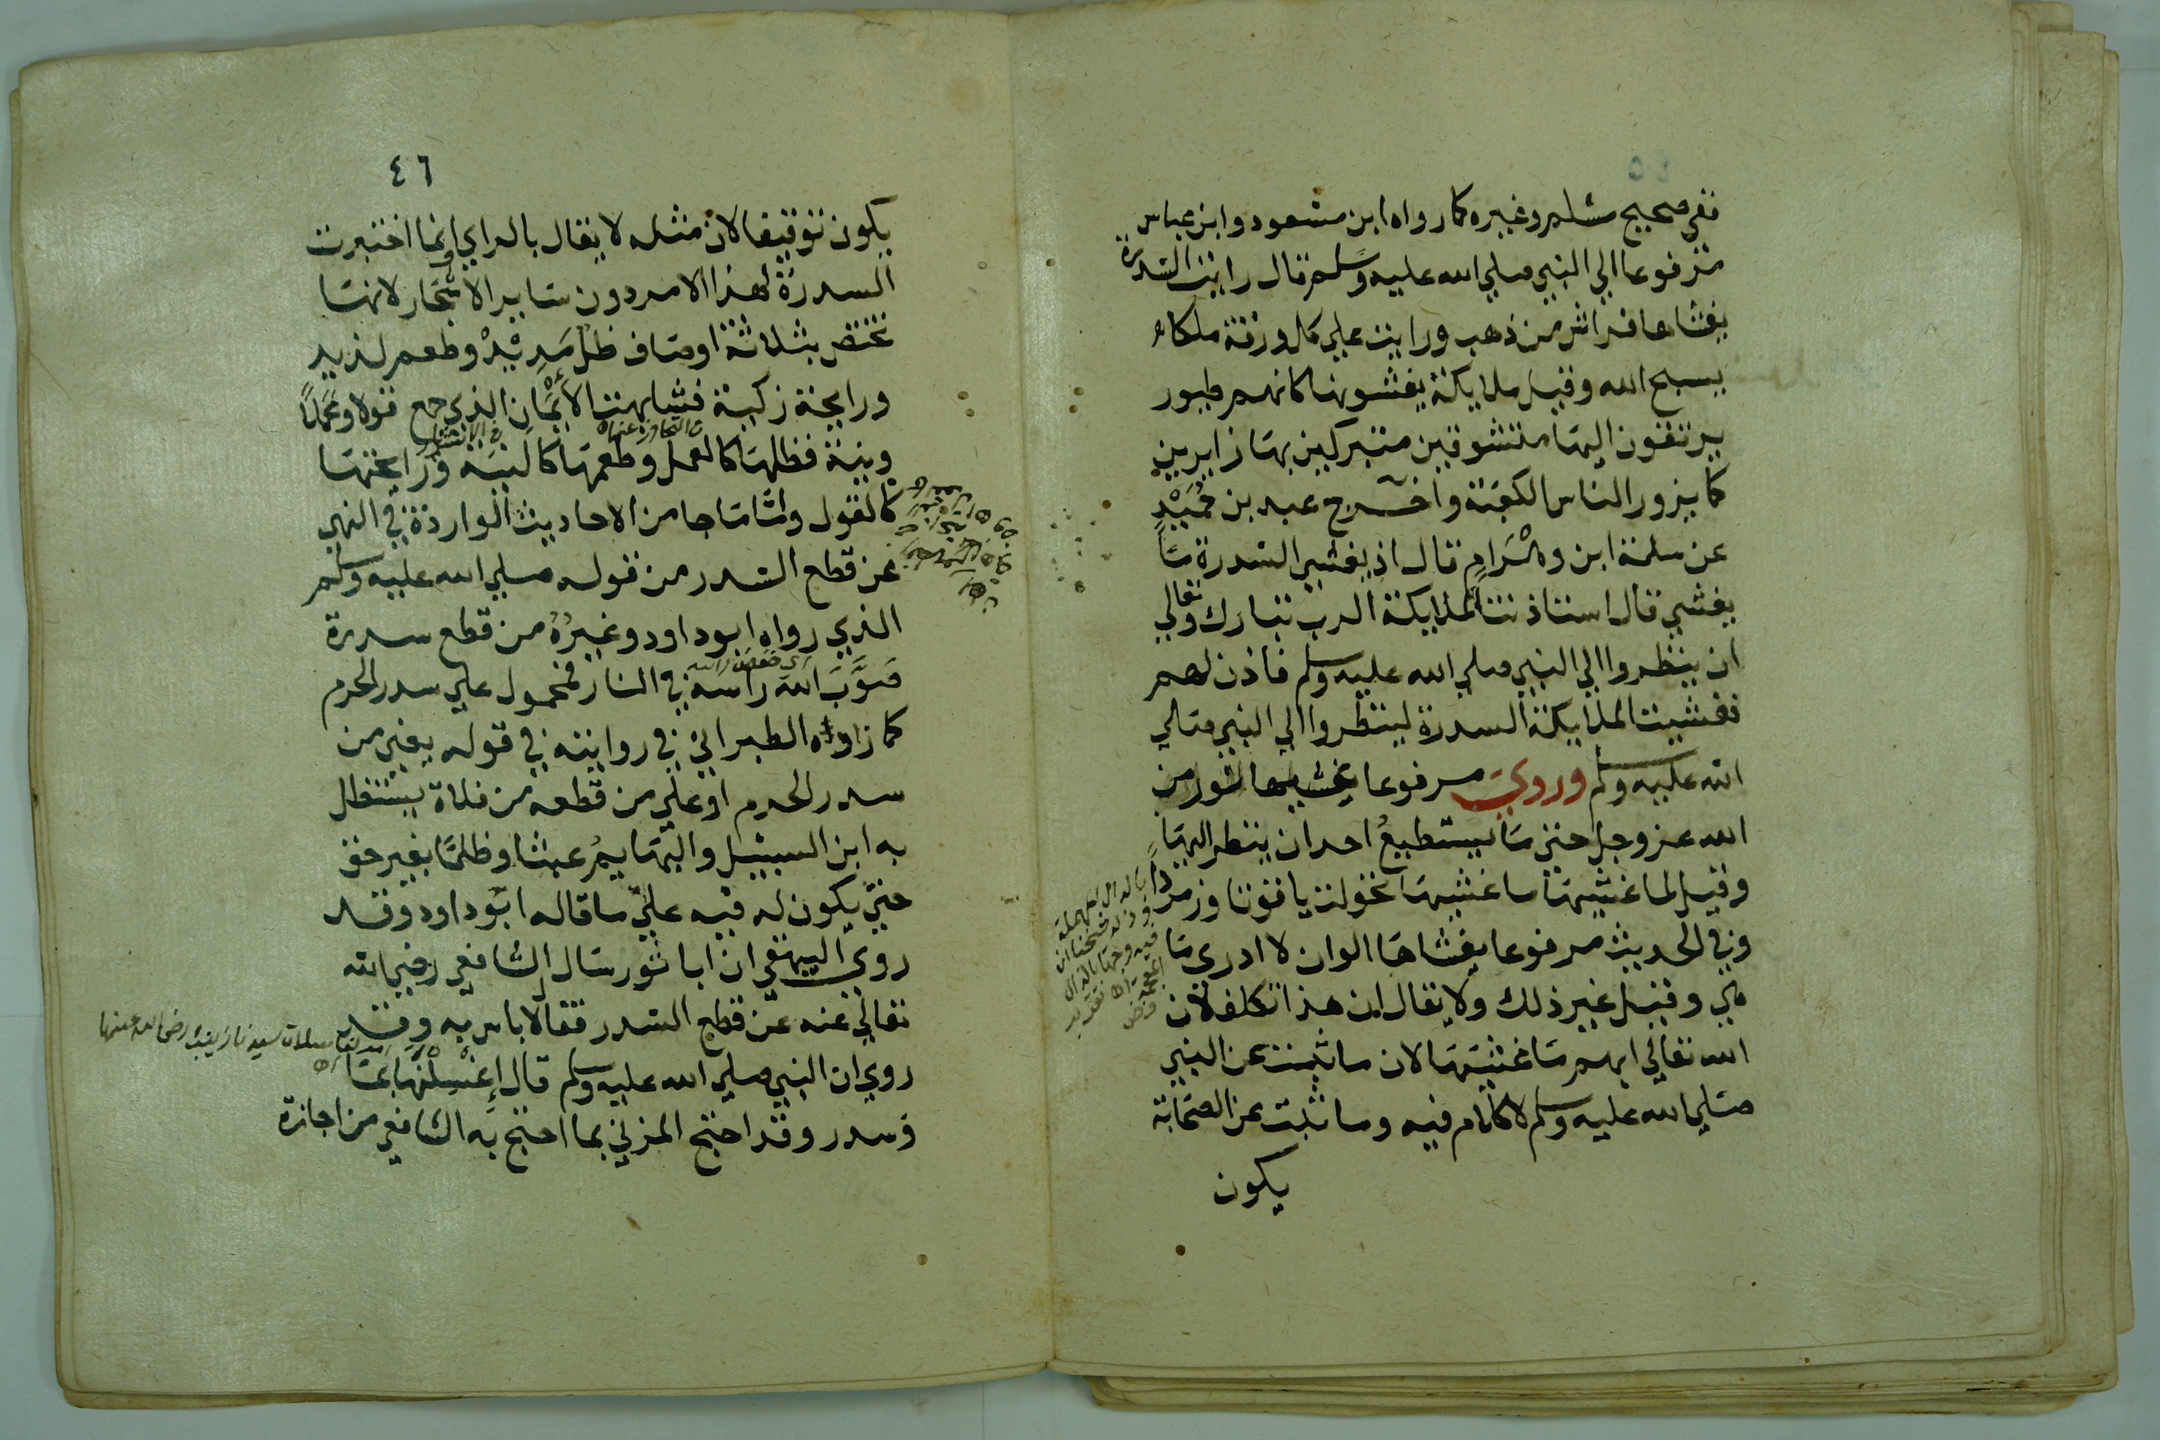 ففي صحيح مسلم وغيره كما رواه ابن مسعود وابن عباس
مرفوعا الي النبي صلي الله عليه وسلم قال رايت السدرة
يغشاها فراش من ذهب ورايت علي كل ورقة ملكا
يسبح الله وقيل ملايكة يغشونها كانهم طيور
يرتقون اليها متشوقين متبركين بها زايرين
كما يزور الناس الكعبة واخرج عبد بن حُمَيْدٍ
عن سلمة ابن وهْرَامٍ قال اذ يغشي السدرة ما
يغشي قال استاذنت الملايكة الرب تبارك وتعالي
ان ينظروا الي النبي صلي الله عليه وسلم فاذن لهم
فغشيت الملايكة السدرة لينظروا الي النبي صلي
الله عليه وسلم وروي مرفوعا يغشيها النور من
الله عز وجل حتي ما يستطيعُ احد ان ينظر اليها
وقيل لما غشيها ما غشيها تحولت ياقوتا وزمردًا
وفي الحديث مرفوعا يغشاها الوان لا ادري ما
هي وقيل غير ذلك ولا يقال ان هذا تكلف لان
الله تعالي ابهم ما غشيها لان ما ثبت عن النبي
صلي الله عليه وسلم لا كلام فيه وما ثبت عن الصحابة
يكون
٤٦
يكون توقيفا لان مثله لا يقال بالراي وانما اختيرت
السدرة لهذا الامر دون ساير الاشجار لانها
تختص بثلاثة اوصاف ظل مَدِيْدٌ وطعم لذيد
ورايحة زكية فشابهت الاِيْمَانِ الذي جمع قولا وعَمَلاً
ونية فظلها كالعمل وطعمها كالنية ورايحتها
كالقول واما ما جا من الاحاديث الواردة في النهي
عن قطع السدر من قوله صلي الله عليه وسلم
الذي رواه ابو داود وغيرُهُ من قطع سدرة
صَوَّبَ الله راسه في النار فمحمول علي سدر الحرم
اي خفض راسه
كما زاوه الطبراني في روايته في قوله يعني من
سدر الحرم او علي من قطعه من فلاة يستظل
به ابن السبيل والبهايمُ عبثا وظلمًا بغير حق
حتي يكون له فيه علي ما قاله ابو داود وقد
روي البيهقي ان ابا ثور سال الشافعي رضي الله
تعالي عنه عن قطع السدر فقال لا باس به وقد
روي ان النبي صلي الله عليه وسلم قال إِغْسِلْنَهَا بمَا
وَسدر وقد احتج المزني بما احتج بِه الشافعي من اجازة
سيدتنا زينب رضي الله عنها